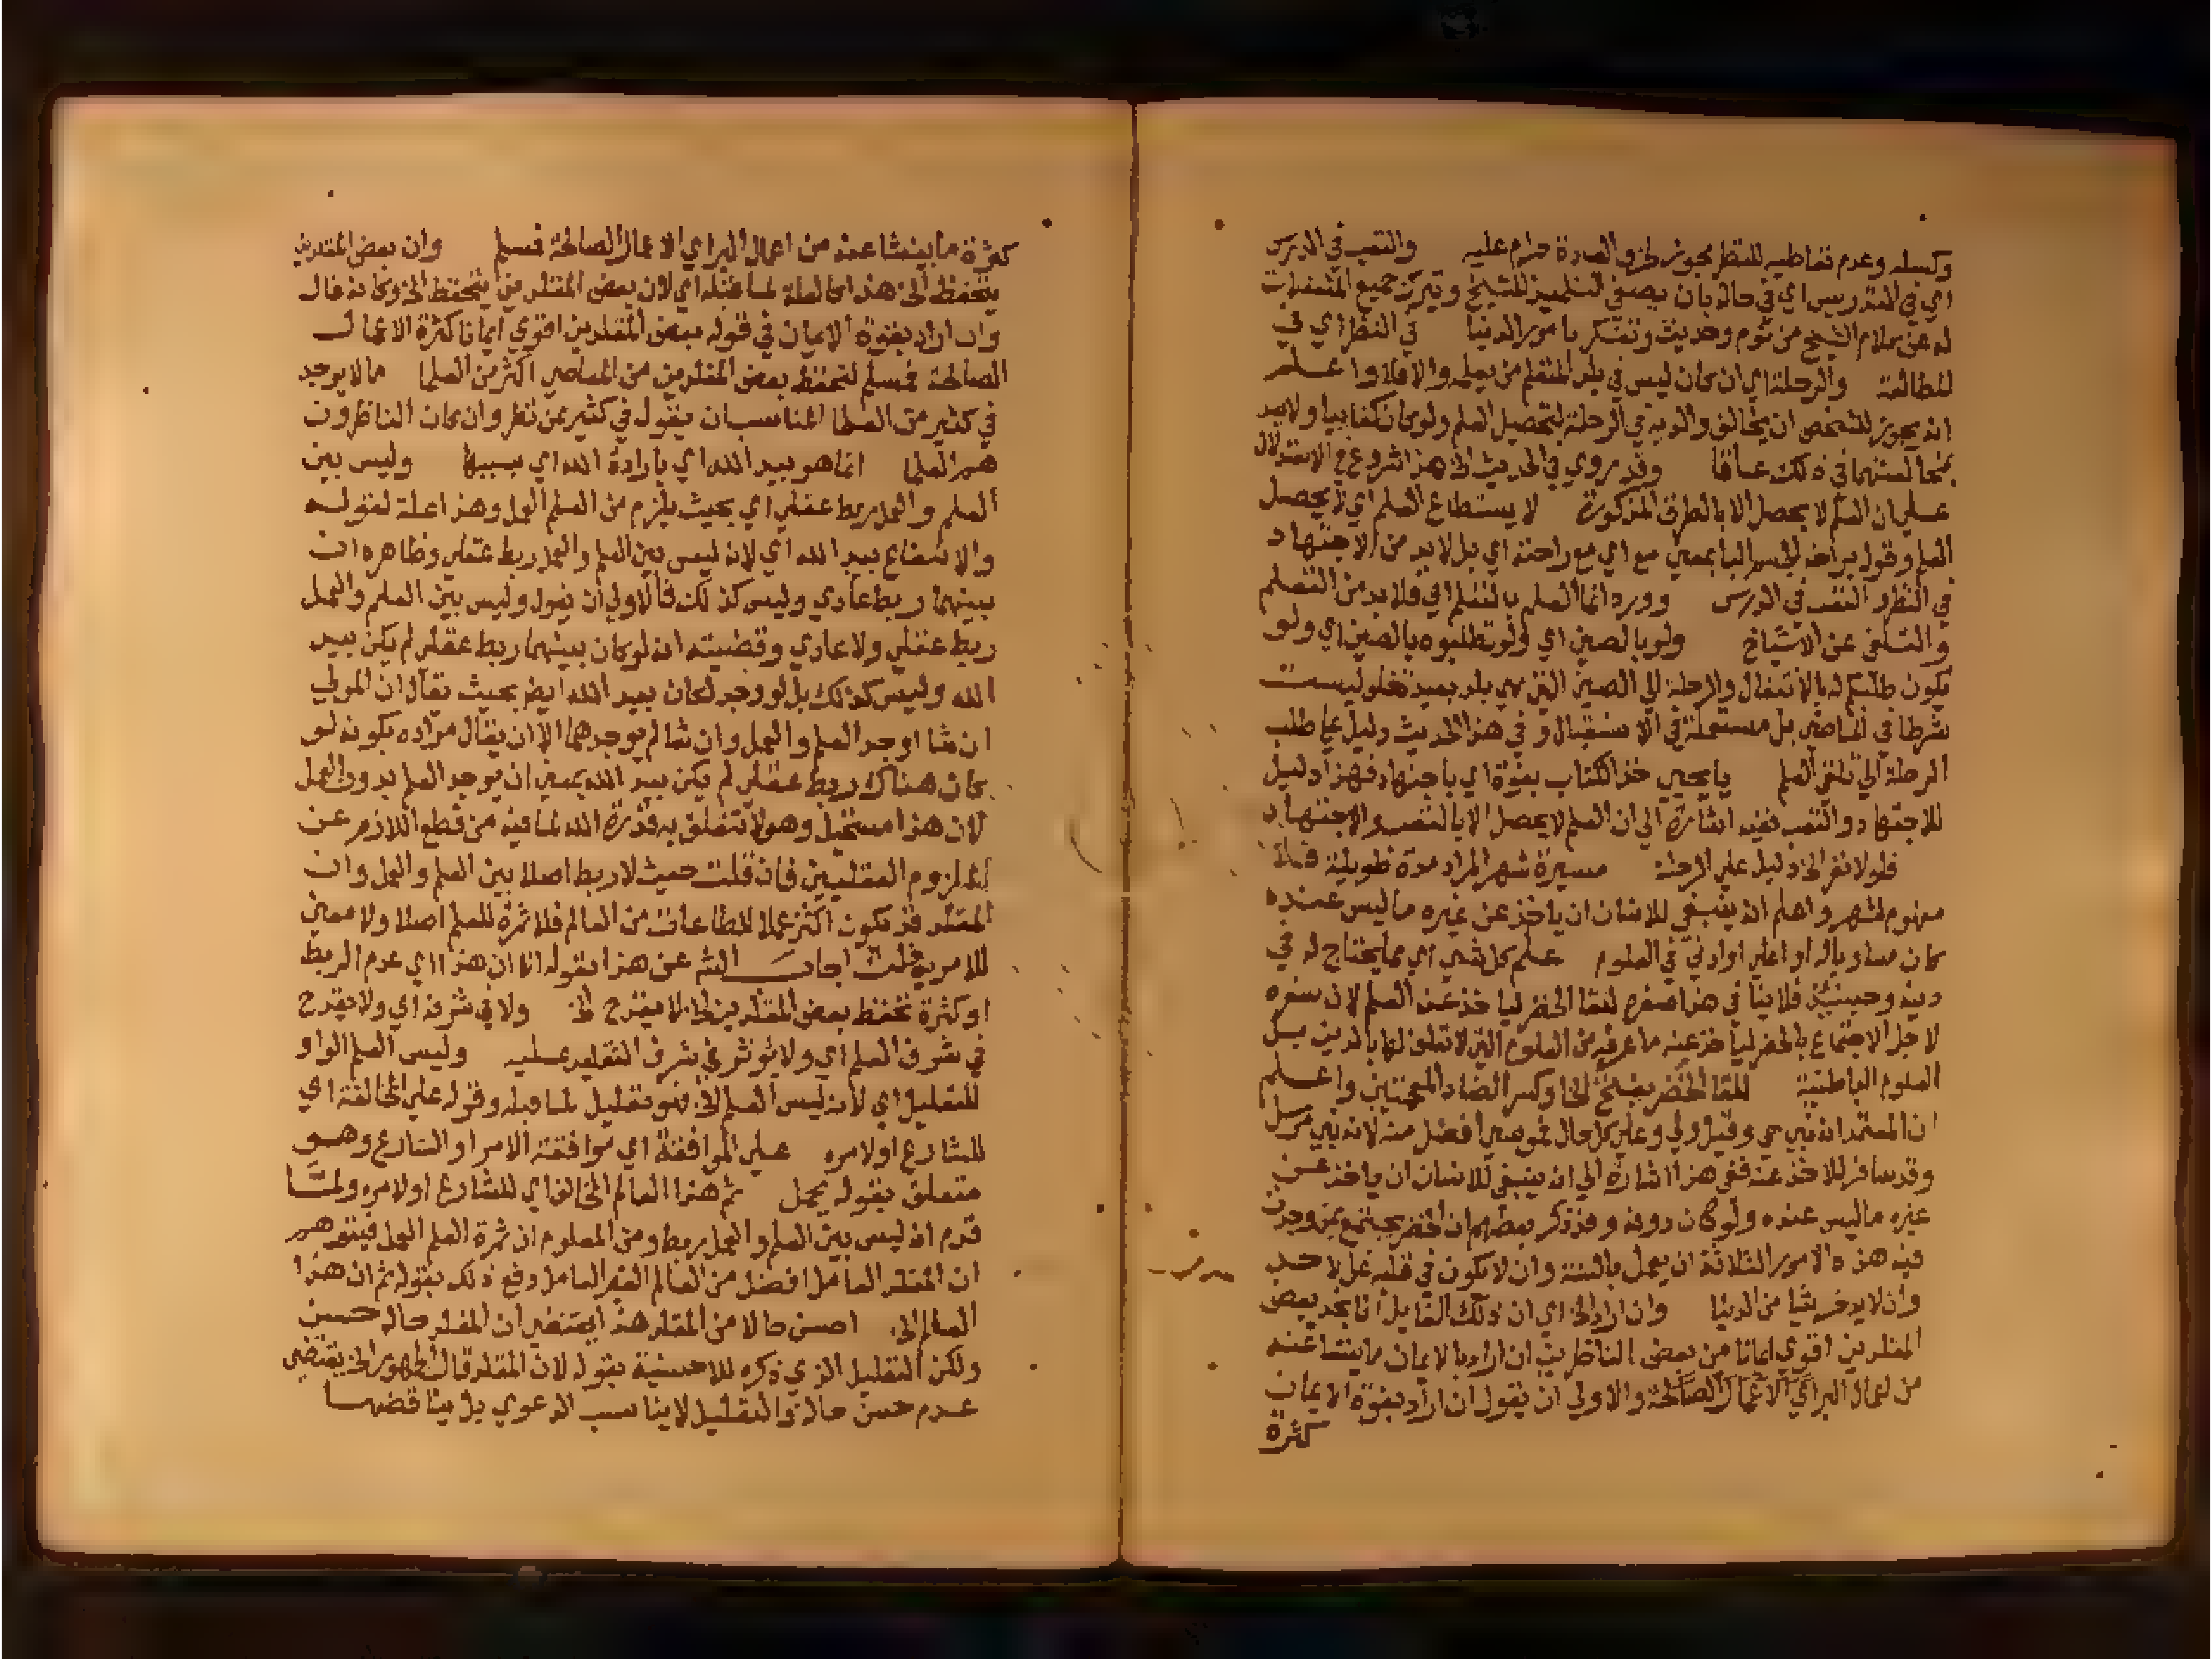 وكسله وعدم تعاطيه للنظر يجوز لخروالصدة حرام عليه والتعب في الدرس
اي في التدريس اي في حاله بان يصغي التلميذ للشيخ ويترك جميع المشغلات
له عن كلام الشيخ من نوم وحديث وتفكر بامور الدنيا في النظر اي في
المطالعة والرحلة اي ان كان ليس في بلد المتعلم من يعلمه والا فلا واعلم
انه يجوز للشخص ان يخالف والديه في الرحلة لتحصيل العلم ولو كان كفاييا ولا يعد
بمخالفتهما في ذلك عاقا وقد روي في الحديث الخ هذا شروع في الاستدلال
علي ان العلم لا يحصل الا بالطرق المذكورة لا يستطاع العلم اي لا يحصل
العلم وقوله براحة الجسم البا بمعني مع اي مع راحته اي بل لا بد من الاجتهاد
في النظر والتعب في الدرس وورد انما العلم بالتعلم اي فلا بد من التعلم
والتلقي عن الاشياخ ولو بالصين اي ولو تطلبوه بالصين اي ولو
يكون طلبكم له بالانتقال والرحلة الي الصين التي هي بلد بعيدة فلو ليست
شرطا في الماضي بل مستعملة في الاستقبال و في هذا الحديث دليل علي طلب
الرحلة الي تلقي العلم يا يحيي خذ الكتاب بقوة اي باجتهاد فهذا دليل
للاجتهاد والتعب ففيه اشارة الي ان العلم لا يحصل الا بالتعب والاجتهاد
فلولا نفر الخ دليل علي الرحلة مسيرة شهر المراد مدة طويلة فلا
مفهوم لشهر واعلم انه ينبغي للانسان ان ياخذ عن غيره ما ليس عنده
كان مساويا له او اعلي او ادني في العلوم علم كل شي اي مما يحتاج له في
دينه وحينيذ فلا ينافي هذا سفره للقا الخضر لياخذ عنه العلم لان سفره
لاجل الاجتماع بالخضر لياخذ عنه ما عرفه من العلوم التي لا تعلق لها بالدين بل
العلوم الباطنية للقا الخضر بفتح الخا وكسر الضاد المعجمتين واعلم
ان المعتمد انه نبي حي وقيل ولي وعلي كل حال فموسي افضل منه لانه نبي مرسل
وقد سافر للاخذ عنه ففي هذا اشارة الي انه ينبغي للانسان ان ياخذ عن
غيره ما ليس عنده ولو كان دونه وقد ذكر بعضهم ان الخضر يجتمع بمن وجدت
فيه هذه الامور الثلاثة ان يعمل بالسنة وان لا يكون في قلبه غل لاحد
وان لا يدخر شيا من الدنيا وان اراد الخ اي ان ذلك القايل انا نجد بعض
المقلدين اقوي ايمانا من بعض الناظرين ان اراد بالايمان ما ينشا عنه
من اعمال البر اي الاعمال الصالحة والاولي ان يقول ان اراد بقوة الايمان
كثرة
كثرة ما ينشا عنه من اعمال البر اي الاعمال الصالحة فمسلم وان بعض المقلدين
يتحفظ الخ هذا كالعلة لما قبله اي لان بعض المقلدين يتحفظ الخ وكانه قال
وان اراد بقوة الايمان في قوله بعض المقلدين اقوي ايمانا كثرة الاعمال
الصالحة فمسلم لتحفظ بعض المقلدين من المعاصي اكثر من العلما ما لا يوجد
في كثير من العلما المناسب ان يقول في كثير ممن نظر وان كان الناظرون
هم العلما انما هو بيد الله اي بارادة الله اي بسببها وليس بين
العلم والعمل ربط عقلي اي بحيث يلزم من العلم العمل وهذا علة لقوله
والانتفاع بيد الله اي لانه ليس بين العلم والعمل ربط عقلي وظاهره ان
بينهما ربط عادي وليس كذلك فالاولي ان يقول وليس بين العلم والعمل
ربط عقلي ولا عادي وقضيته انه لو كان بينهما ربط عقلي لم يكن بيد
الله وليس كذلك بل لو وجد لكان بيد الله ايض بحيث يقال ان المولي
ان شا اوجد العلم والعمل وان شا لم يوجدهما الا ان يقال مراده بكونه لو
كان هناك ربط عقلي لم يكن بيد الله بمعني ان يوجد العلم بدون العمل
لان هذا مستحيل وهو لا تتعلق به قدرة الله لما فيه من قطع اللازم عن
الملزوم العقليين فان قلت حيث لا ربط اصلا بين العلم والعمل وان
المقلد قد يكون اكثر عملا للطاعات من العالم فلا ثمرة للعلم اصلا ولا معني
للامر به قلت اجاب الشه عن هذا بقوله الا ان هذا اي عدم الربط
او كثرة تحفظ بعض المقلدين الخ لا يقدح الخ ولا في شرفه اي ولا يقدح
في شرف العلم اي ولا يوثر في شرف التقليد عليه وليس العلم الواو
للتعليل اي لانه ليس العلم الخ فهو تعليل لما قبله وقوله علي المخالفة اي
للشارع او لامره علي الموافقة اي موافقة الامر او الشارع وهو
متعلق بقوله يحمل ثم هذا العالم المخالف اي للشارع او لامره ولما
قدم انه ليس بين العلم والعمل ربط ومن المعلوم ان ثمرة العلم العمل فيتوهم
ان المقلد العامل افضل من العالم الغير العامل دفع ذلك بقوله ثم ان هذا
العالم الخ احسن حالا من المقلد هذا يقتضي ان المقلد حاله حسن
ولكن التعليل الذي ذكره للاحسنية بقوله لان المقلد قال الجمهور الخ يقتضي
عدم حسن حاله فالتعليل لا يناسب الدعوي بل يناقضها